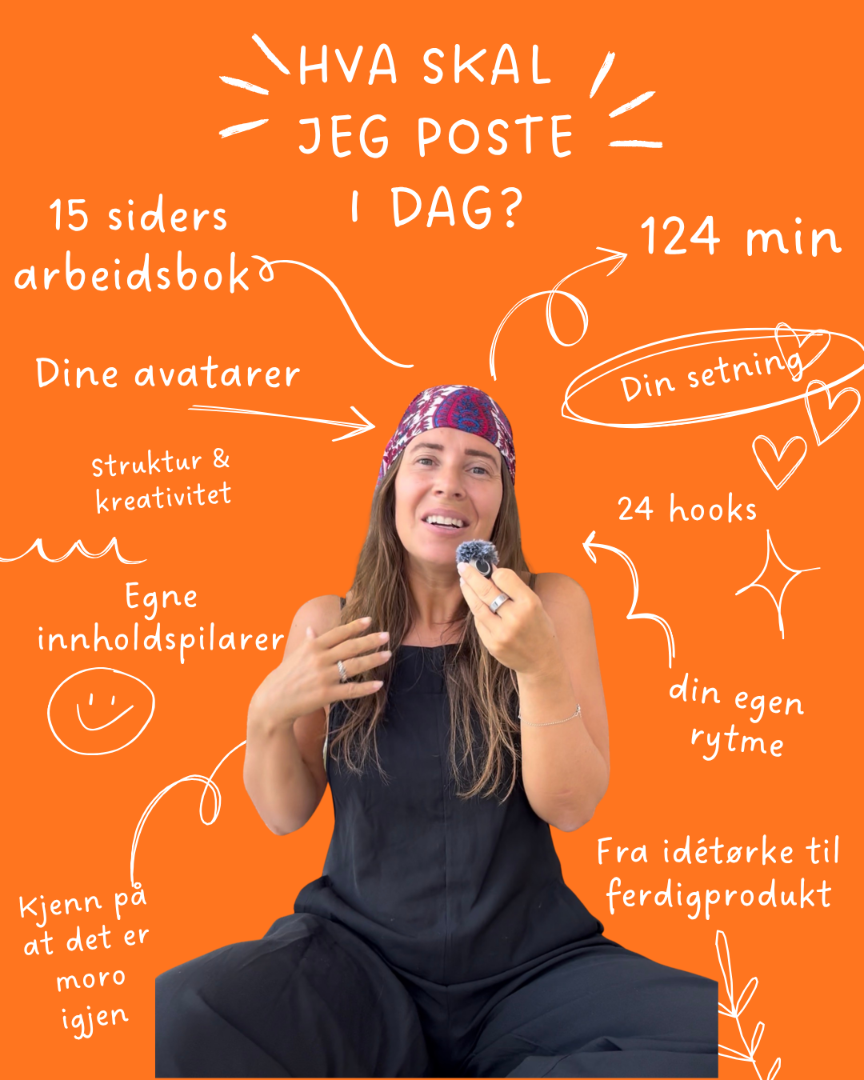 HVA SKAL
JEG POSTE
I DAG?
15 siders
arbeidsbok
124 min
Dine avatarer
Din setning
struktur &
kreativitet
24 hooks
Egne
innholdspilarer
din egen
rytme
Fra idétørke til
ferdigprodukt
Kjenn på
at det er
moro
igjen